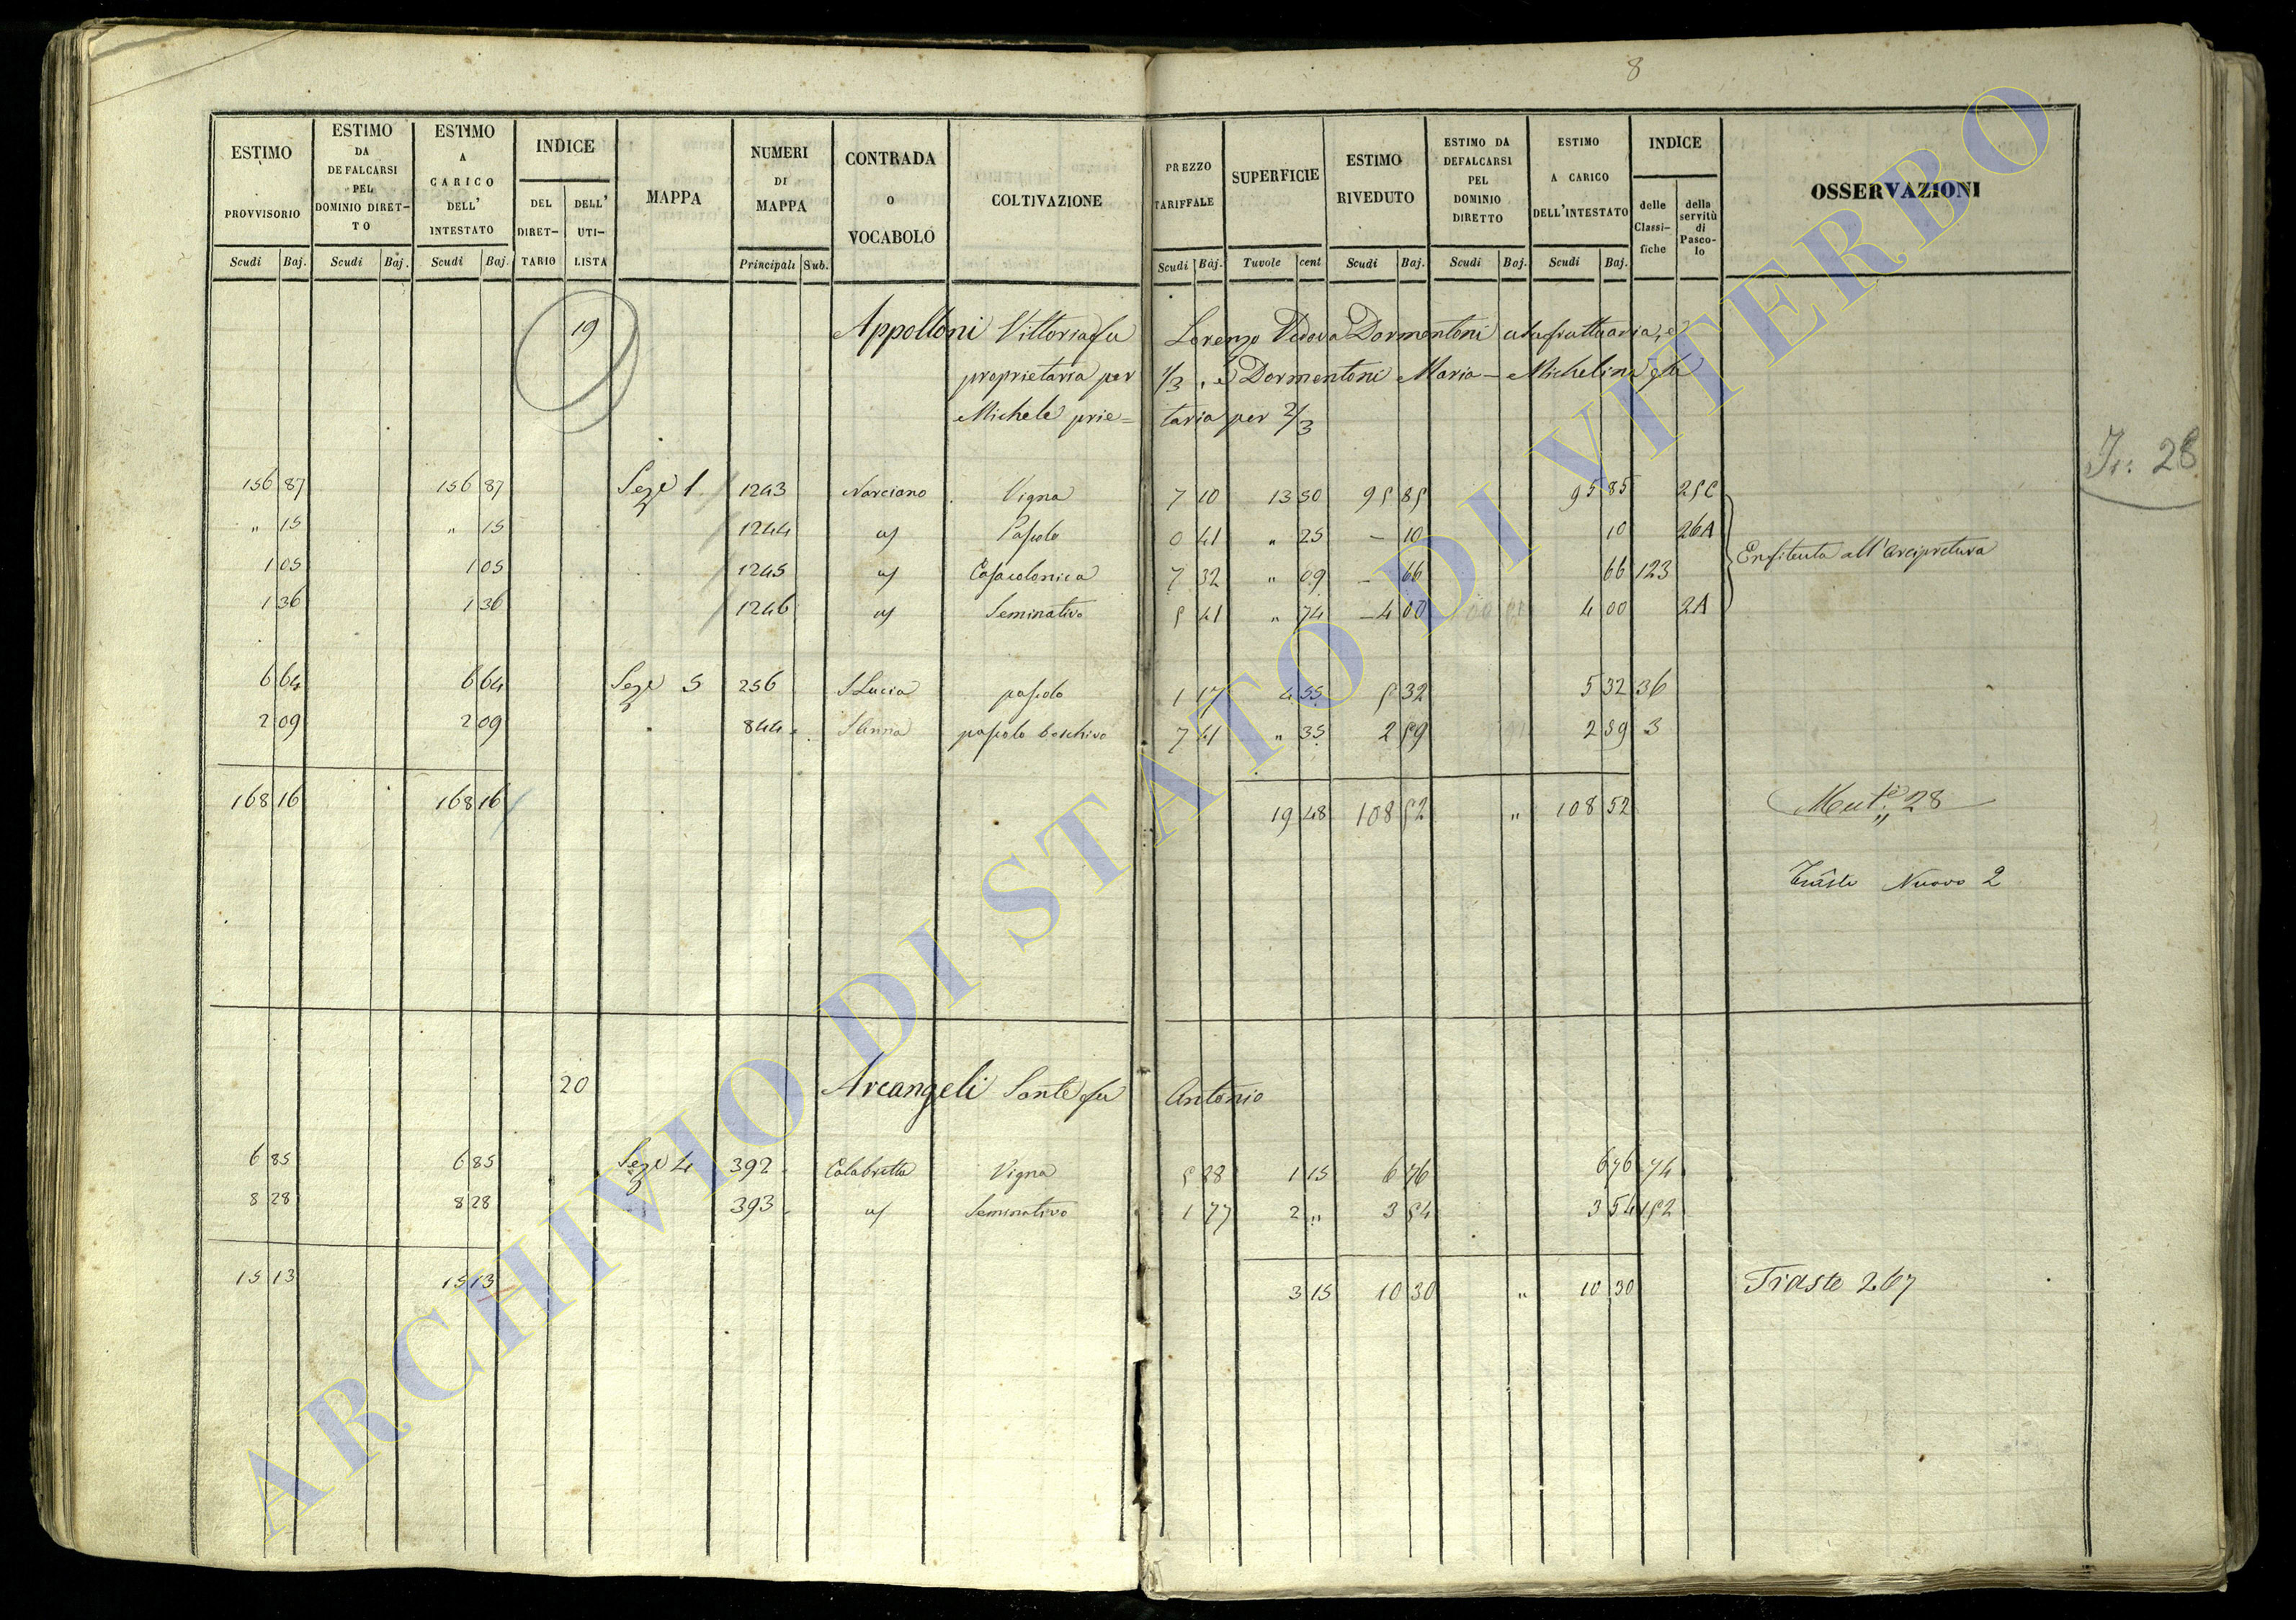 8
ESTIMO PROVVISORIO | ESTIMO DA DEFALCARSI PEL DOMINIO DIRETTO | ESTIMO A CARICO DELL' INTESTATO | INDICE | MAPPA | NUMERI DI MAPPA | CONTRADA O VOCABOLO | COLTIVAZIONE | PREZZO TARIFFALE | SUPERFICIE | ESTIMO RIVEDUTO | ESTIMO DA DEFALCARSI PEL DOMINIO DIRETTO | ESTIMO A CARICO DELL'INTESTATO | INDICE | OSSERVAZIONI
DEL DIRET-TARIO | DELL' UTI-LISTA | delle Classi-fiche | della servitù di Pasco-lo
Scudi Baj. | Scudi Baj. | Scudi Baj. | Principali Sub. | Scudi Baj. | Tavole cent | Scudi Baj. | Scudi Baj. | Scudi Baj.
19 Appolloni Vittoria fu Lorenzo Vedova Dormentoni usufruttuaria, e
proprietaria per 1/3, e Dormentoni Maria-Michelina fu
Michele prie=taria per 2/3
Fr: 28
156 87 156 87 Seze 1 1243 Narciano Vigna 7 10 13 50 95 85 95 85 25C
" 15 " 15 1244 a/ Pascolo 0 41 " 25 – 10 10 26A
1 05 1 05 1245 a/ Casa colonica 7 32 " 09 – 66 66 123
Enfiteuta all'Arcipretura
1 36 1 36 1246 a/ Seminativo 5 41 " 74 – 4 00 4 00 2A
6 64 6 64 Seze 5 256 S Lucia pascolo 1 17 4 55 5 32 5 32 36
2 09 2 09 844 S Anna pascolo boschivo 7 41 " 35 2 59 2 59 3
168 16 168 16 19 48 108 52 " 108 52 Mut.e 28
Nuovo 2
20 Arcangeli Sante fu Antonio
6 85 6 85 Seze 4 392 Calabretta Vigna 5 88 1 15 6 76 6 76 74
8 28 8 28 393 a/ Seminativo 1 77 2 " 3 54 3 54 152
15 13 15 13 3 15 10 30 " 10 30 Traste 267
ARCHIVIO DI STATO DI VITERBO